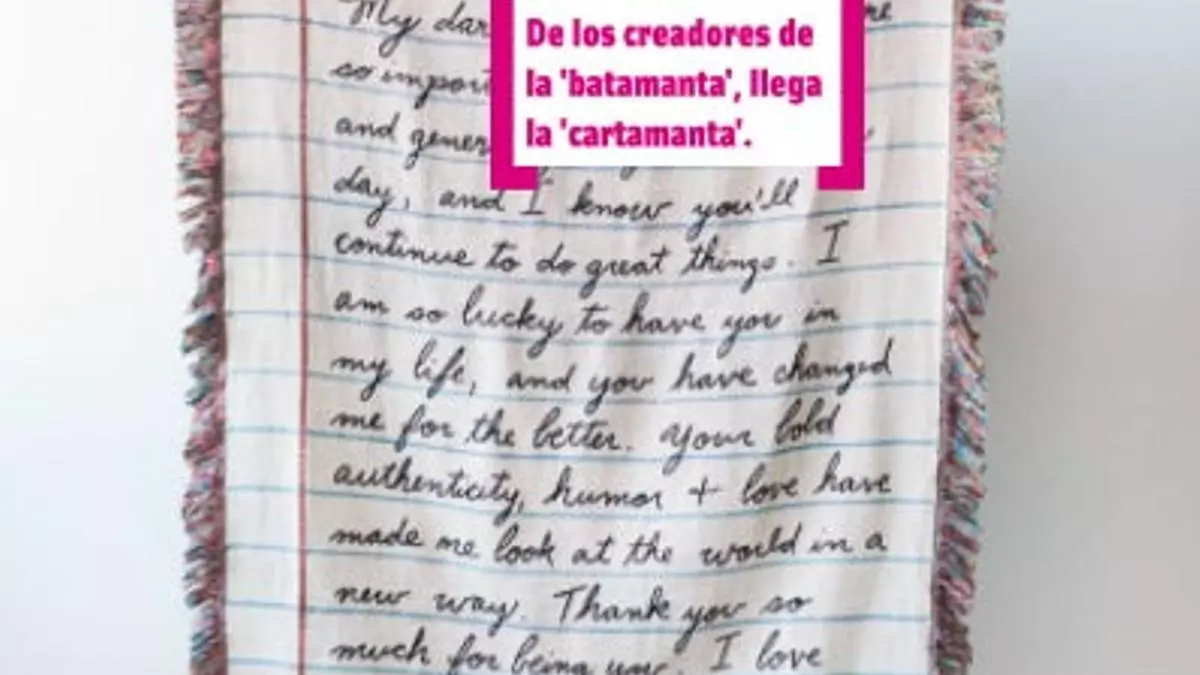 De los creadores de
la 'batamanta', llega
la 'cartamanta'.
My dar
so import
and gener
day, and I know you'll
continue to do great things. I
am so lucky to have you in
my life, and you have changed
me for the better. Your bold
authenticity, humor + love have
made me look at the world in a
new way. Thank you so
much for being you. I love